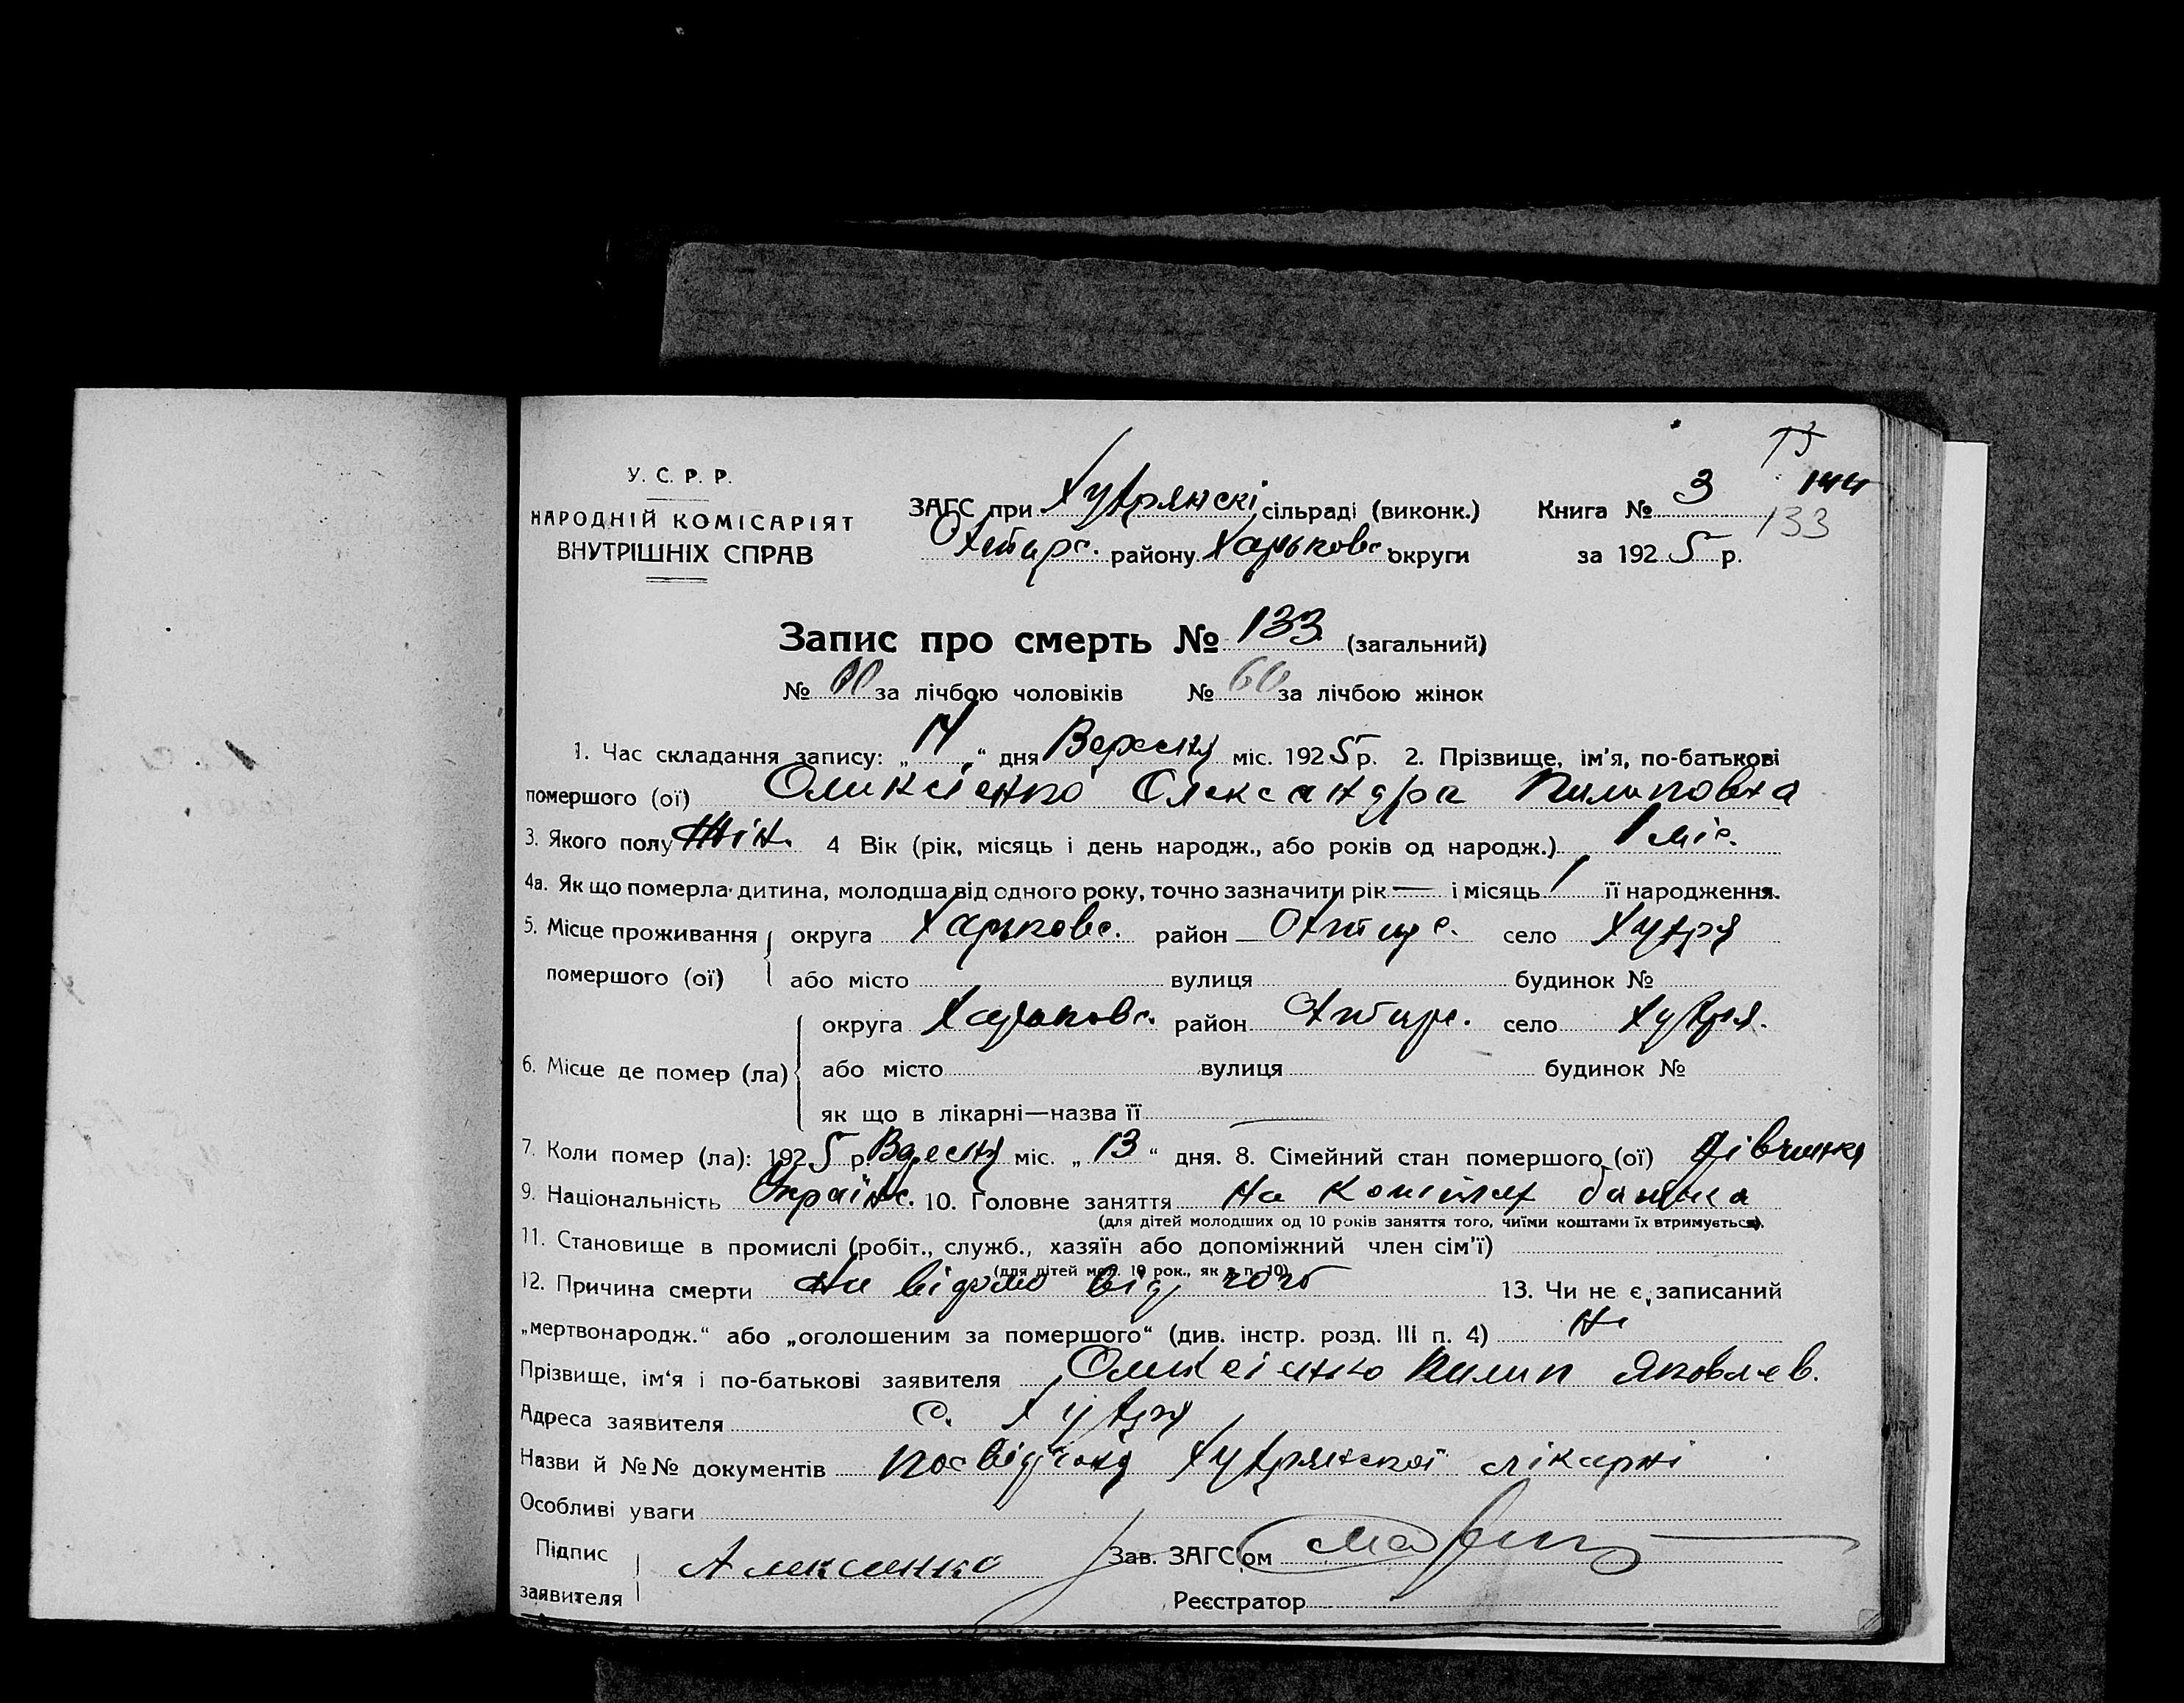 У. С. Р. Р.
НАРОДНІЙ КОМІСАРІЯТ
ВНУТРІШНІХ СПРАВ
ЗАГС при Хухрянскі сільраді (виконк.)
Охтирс. району Харьковс. округи
Книга № 3
за 1925 р.
144
133
Запис про смерть № 133 (загальний)
№ за лічбою чоловіків № 66 за лічбою жінок
1. Час складання запису: „14“ дня Вересня міс. 1925 р. 2. Прізвище, ім'я, по-батькові
помершого (ої) Оликсієнко Олександра Пилиповна
3. Якого полу Жін. 4 Вік (рік, місяць і день народж., або років од народж.) 1 міс.
4а. Як що померла дитина, молодша від одного року, точно зазначити рік — і місяць 1 її народження.
5. Місце проживання округа Харьковс. район Охтирс. село Хухря
помершого (ої) або місто вулиця будинок №
округа Харьковс. район Охтирс. село Хухря.
6. Місце де помер (ла) або місто вулиця будинок №
як що в лікарні—назва її
7. Коли помер (ла): 1925 р. Вересня міс. „13“ дня. 8. Сімейний стан помершого (ої) дівчинка
9. Національність Україн. 10. Головне заняття На коштах батька
(для дітей молодших од 10 років заняття того, чиїми коштами їх втримується).
11. Становище в промислі (робіт., служб., хазяїн або допоміжний член сім'ї)
(для дітей мол. 10 рок., як в п. 10)
12. Причина смерти Не відомо від чого 13. Чи не є записаний
„мертвонародж.“ або „оголошеним за помершого“ (див. інстр. розд. III п. 4) Не
Прізвище, ім'я і по-батькові заявителя Оликсієнко Пилип Яковлев.
Адреса заявителя С. Хухря
Назви й №№ документів посвідчення Хухрянської лікарні
Особливі уваги
Підпис
заявителя Алексиенко
Зав. ЗАГС'ом
Реєстратор